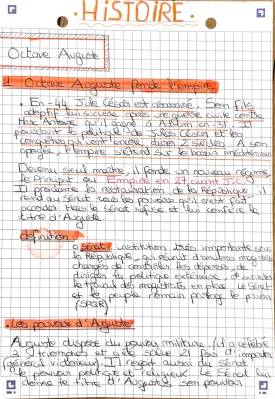 HISTOIRE.
Octave Auguste
1. Octave Auguste fonde l'empire.
• En -44 Jules César est assassiné. Son fils
adoptif lui succède après une guerre civile contre
Marc Antoine qu'il gagne à Actium en 31. Il
poursuit la politique de Jules César et les
conquêtes qui vont encore durer 2 siècles. A son
apogée, l'Empire s'étend sur le bassin méditerranéen
Devenu seul maître, il fonde un nouveau régime
le Principat ou Empire en 27 avant J.C
Il proclame la restauration de la République. Il
rend au Sénat tous les pouvoirs qu'il avait fait
accorder. Mais le Sénat refuse et lui confère le
titre d'Auguste.
définition:
• Sénat: institution très importante sous
la République, qui réunit d'anciens magistrats
chargés de contrôler les dépenses, de
diriger la politique extérieure, de surveiller
le travail des magistrats en place. Le Sénat
et le peuple romain partage le pouvoir
(SPQR)
• Les pouvoirs d'Auguste
Auguste dispose du pouvoir militaire (il a célébré
3 triomphes et a été salué 21 fois d'imperator
(général victorieux). Il reçoit aussi du Sénat
le pouvoir politique et religieux. Le Sénat lui
donne le titre d'Auguste, son pouvoir